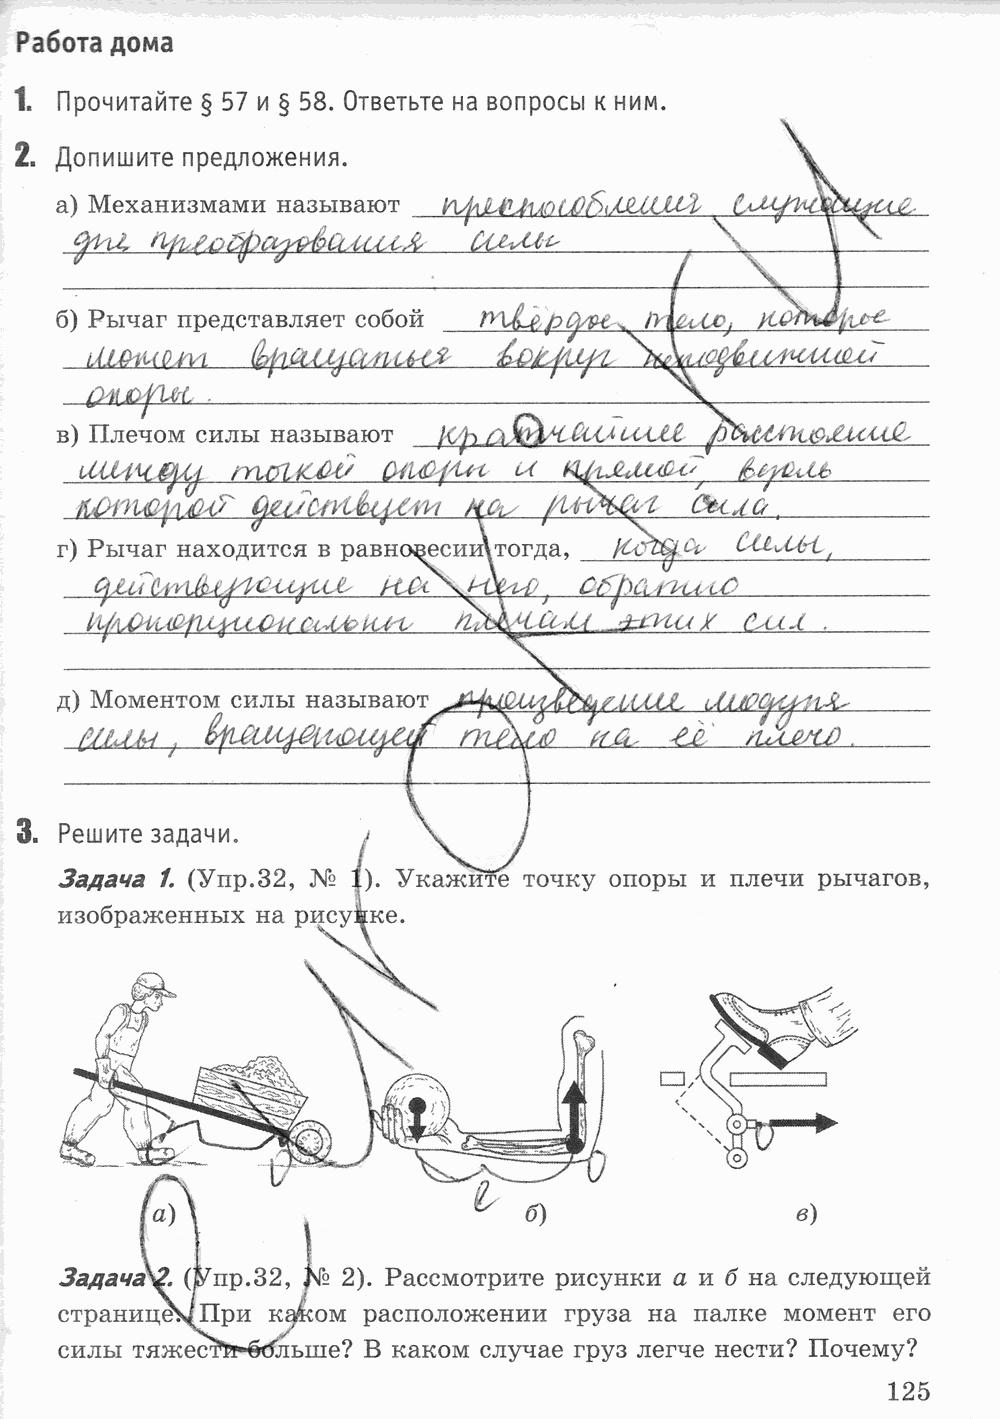 Работа дома
1. Прочитайте § 57 и § 58. Ответьте на вопросы к ним.
2. Допишите предложения.
а) Механизмами называют преспособления служащие
для преобразования силы
б) Рычаг представляет собой твёрдое тело, которое
может вращаться вокруг неподвижной
опоры.
в) Плечом силы называют кратчайшее расстояние
между точкой опоры и прямой, вдоль
которой действует на рычаг сила.
г) Рычаг находится в равновесии тогда, когда силы,
действующие на него, обратно
пропорциональны плечам этих сил.
д) Моментом силы называют произведение модуля
силы, вращающей тело на её плечо.
3. Решите задачи.
Задача 1. (Упр.32, № 1). Укажите точку опоры и плечи рычагов,
изображенных на рисунке.
а) б) в)
Задача 2. (Упр.32, № 2). Рассмотрите рисунки а и б на следующей
странице. При каком расположении груза на палке момент его
силы тяжести больше? В каком случае груз легче нести? Почему?
125